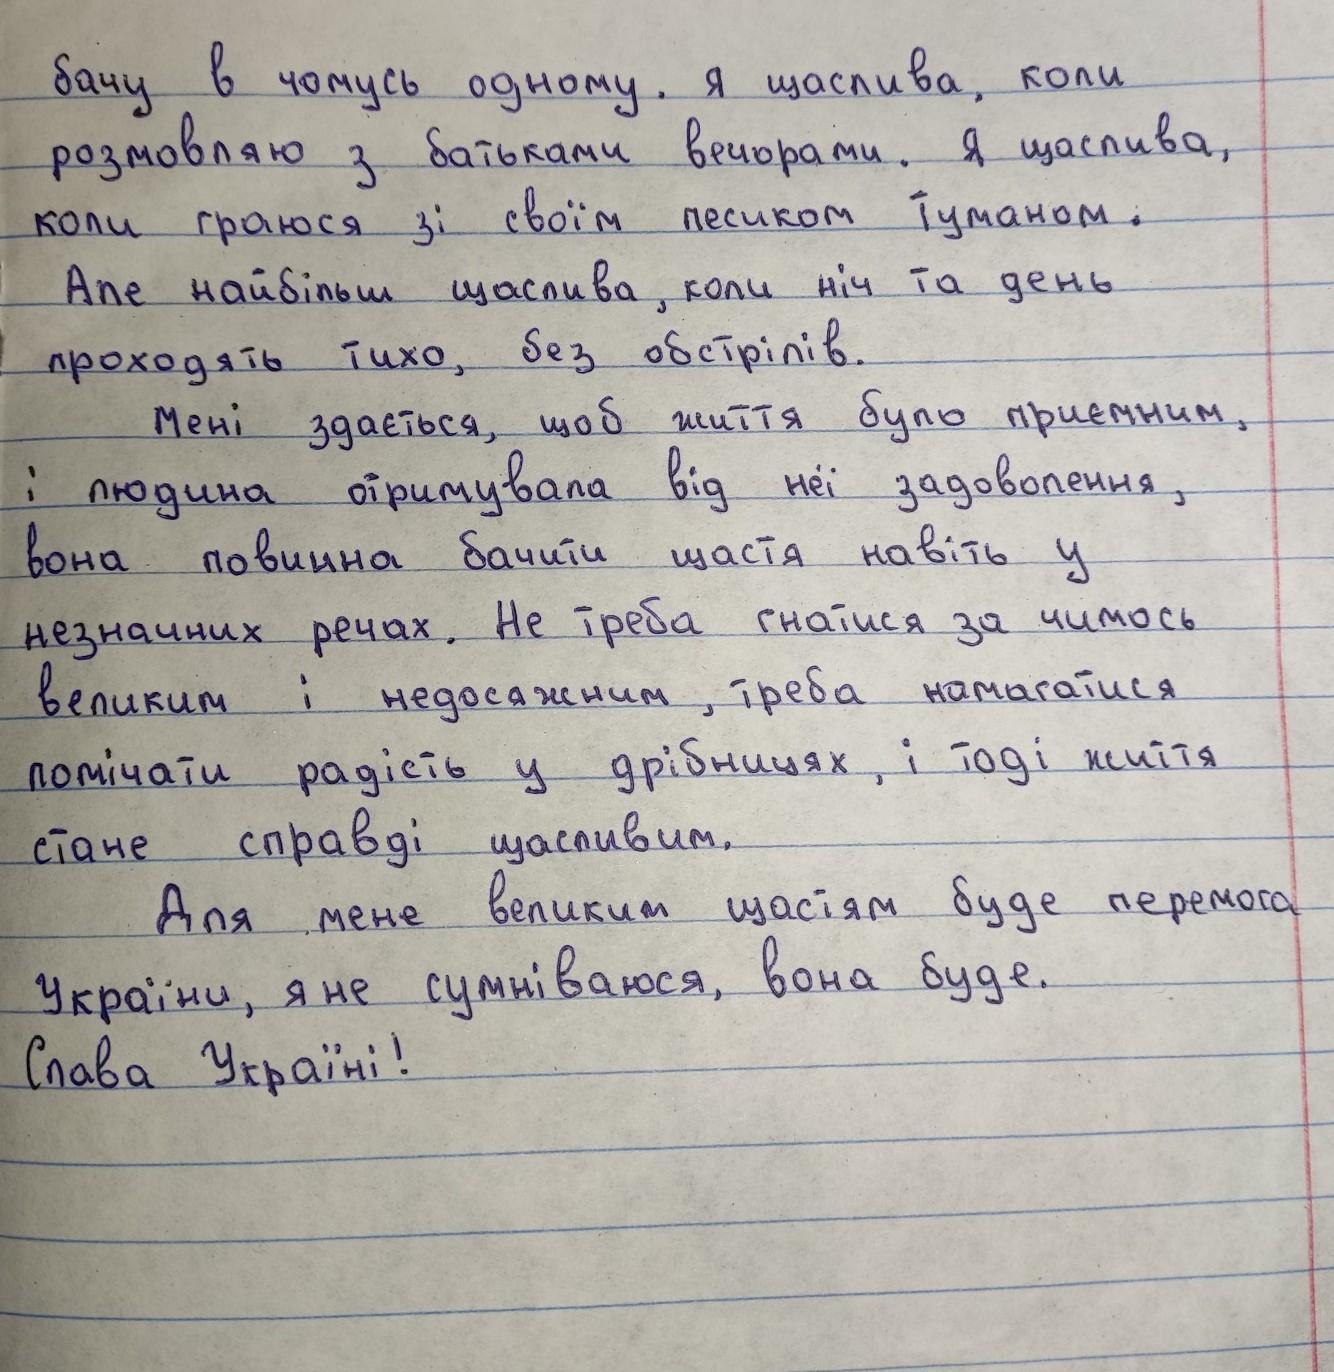 бачу в чомусь одному. Я щаслива, коли
розмовляю з батьками вечорами. Я щаслива,
коли граюся зі своїм песиком Туманом.
Але найбільш щаслива, коли ніч та день
проходять тихо, без обстрілів.
Мені здається, щоб життя було приємним,
і людина отримувала від неї задоволення,
вона повинна бачити щастя навіть у
незначних речах. Не треба гнатися за чимось
великим і недосяжним, треба намагатися
помічати радість у дрібницях, і тоді життя
стане справді щасливим.
Для мене великим щастям буде перемога
України, я не сумніваюся, вона буде.
Слава Україні!